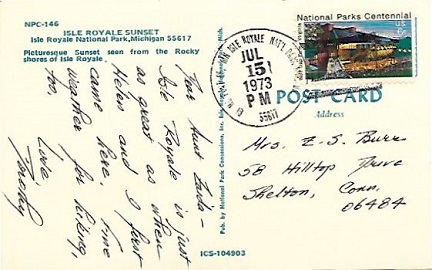 NPC-146
ISLE ROYALE SUNSET
Isle Royale National Park, Michigan 55617
Picturesque Sunset seen from the Rocky
shores of Isle Royale.
Dear Aunt Zada -
Isle Royale is just
as great as when
Helen and I first
came here. Fine
weather for hiking,
too.
Love
Dorothy
Pub. by National Park Concessions, Inc.
ICS-104903
ISLE ROYALE NAT'L PARK
JUL
15
1973
PM
55617
National Parks Centennial
POST CARD
Address
Mrs. E. S. Burr
58 Hilltop Drive
Shelton, Conn.
06484